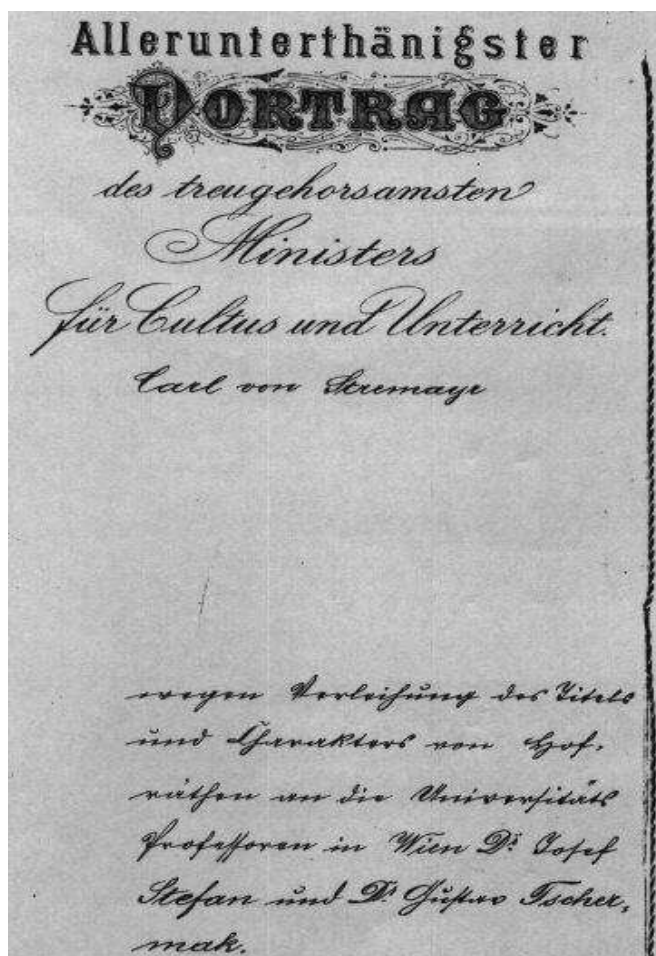 Allerunterthänigster
VORTRAG
des treugehorsamsten
Ministers
für Cultus und Unterricht.
Carl von Stremayr
wegen Verleihung des Titels
und Charakters von Hof-
räthen an die Universitäts
Professoren in Wien Dr. Josef
Stefan und Dr. Gustav Tscher-
mak.